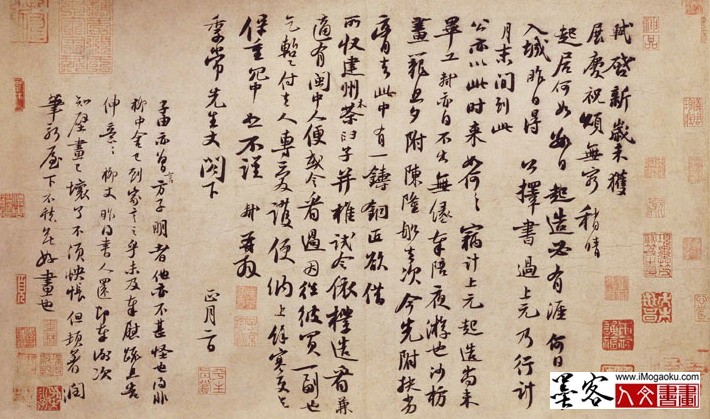 軾啓新歲未獲
展慶祝頌無窮稍晴
起居何如數日起造必有涯何日
入城昨日得公擇書過上元乃行計
月末間到此
公亦以此時來如何〻竊計上元起造尚未
畢工軾亦自不出無緣奉陪夜遊也沙枋
畫籠旦夕附陳隆船去次今先附扶劣
膏去此中有一鑄銅匠欲借
所收建州木茶臼子并椎試令依樣造看兼
適有閩中人便或令看過因往彼買一副也
乞暫付去人專愛護便納上餘寒更乞
保重冗中恕不謹 軾再拜
季常先生丈閤下
正月二日
子由亦曾言方子明者他亦不甚怪也得非
柳中舍已到家言之乎未及奉慰疏且告
伸意〻柳丈昨得書人還即奉謝次
知壁畫已壞了不須怏悵但頓著潤
筆新屋下不愁無好畫也
www.iMogaoku.com
墨客人文書畫